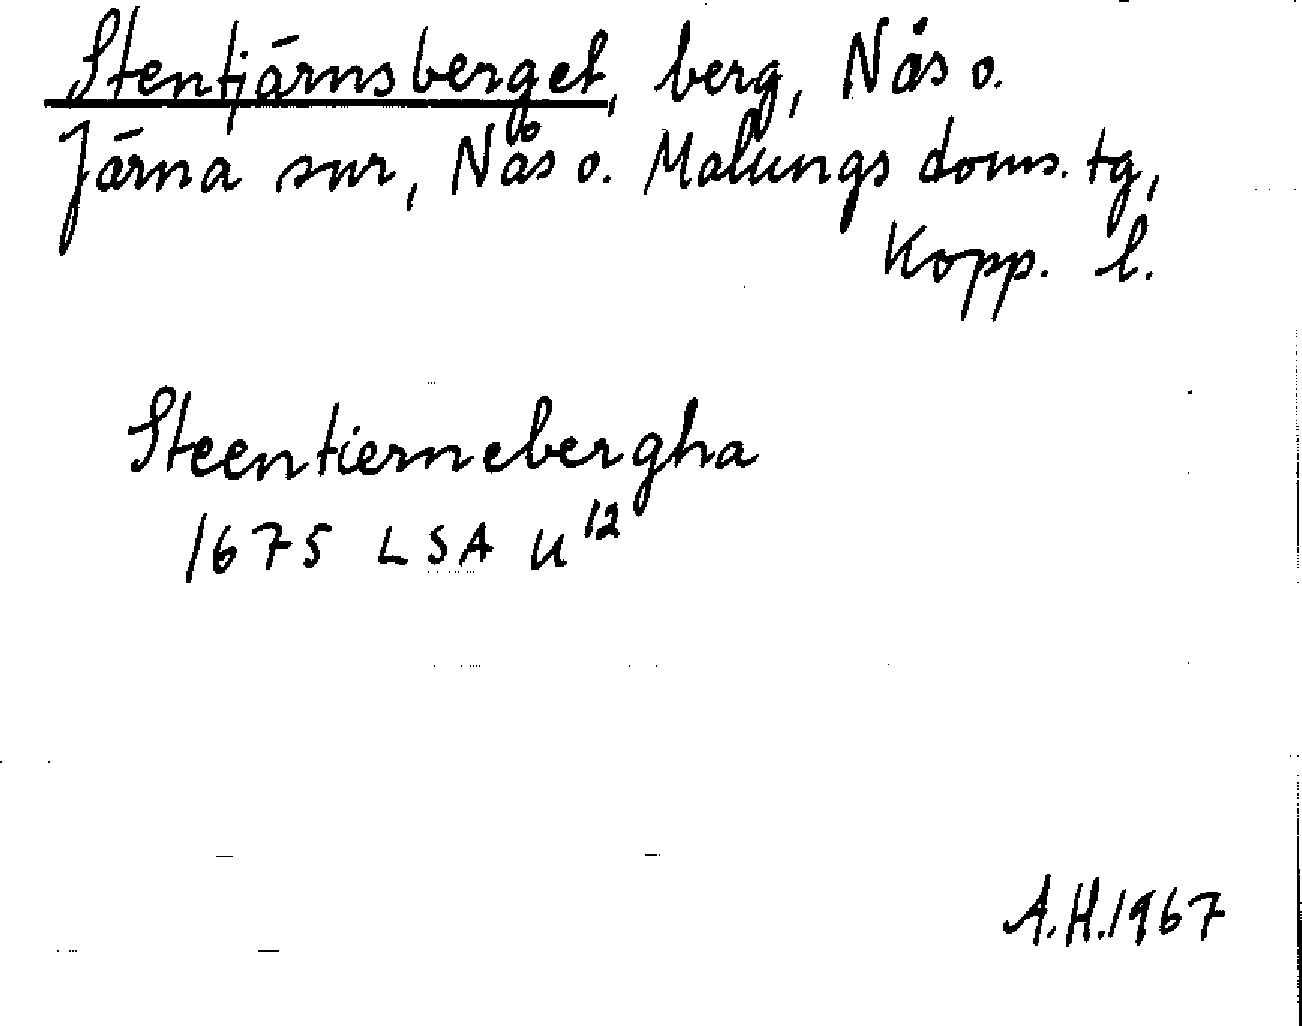 Stentjärnsberget, berg, Nås o.
Järna snr, Nås o. Malungs doms. tg,
Kopp. l.
Steentiernebergha
1675 LSA U¹²
A.H. 1967